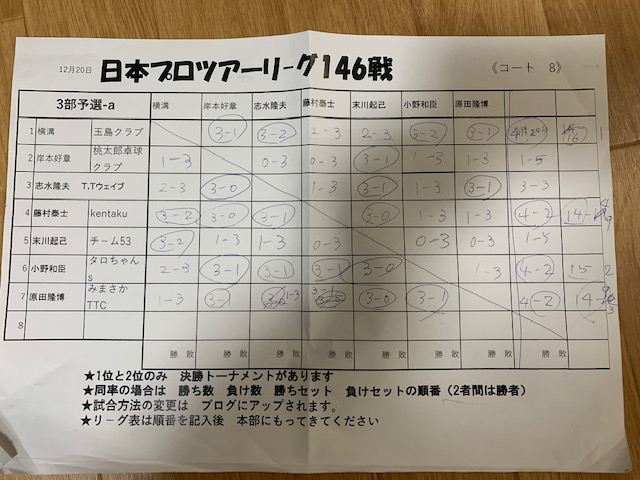 12月20日 日本プロツアーリーグ146戦 《コート 8》
3部予選-a 横溝 岸本好章 志水隆夫 藤村泰士 末川起己 小野和臣 原田隆博
1 横溝 玉島クラブ 3-1 3-2 2-3 2-3 3-2 3-1 1
2 岸本好章 桃太郎卓球クラブ 1-3 0-3 0-3 3-1 1-3 1-3 1-5
3 志水隆夫 T.Tウェイブ 2-3 3-0 1-3 3-1 1-3 3-1 3-3
4 藤村泰士 kentaku 3-2 3-0 3-1 3-0 1-3 1-3 4-2 14-
5 末川起己 チーム53 3-2 1-3 1-3 0-3 0-3 0-3 1-5
6 小野和臣 タロちゃんs 2-3 3-1 3-1 3-1 3-0 1-3 4-2 15 2
7 原田隆博 みまさかTTC 1-3 3-1 1-3 3-1 3-0 3-1 4-2 14- 3
8
勝 敗 勝 敗 勝 敗 勝 敗 勝 敗 勝 敗 勝 敗 勝 敗 勝 敗
★1位と2位のみ 決勝トーナメントがあります
★同率の場合は 勝ち数 負け数 勝ちセット 負けセットの順番(2者間は勝者)
★試合方法の変更は ブログにアップされます。
★リーグ表は順番を記入後 本部にもってきてください